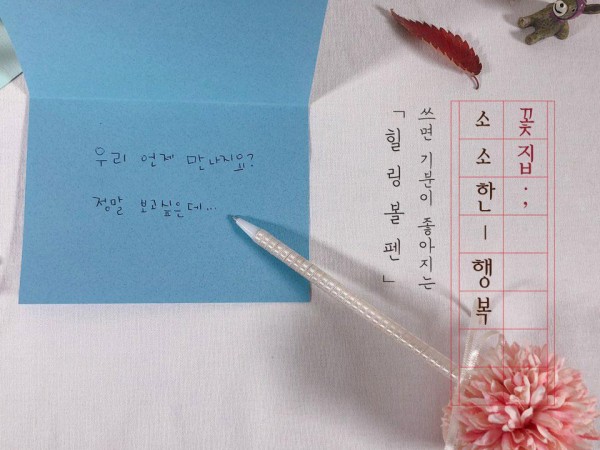 우리 언제 만나지요?
정말 보고싶은데...
꽃집;
소소한 - 행복
쓰면 기분이 좋아지는
「힐링볼펜」